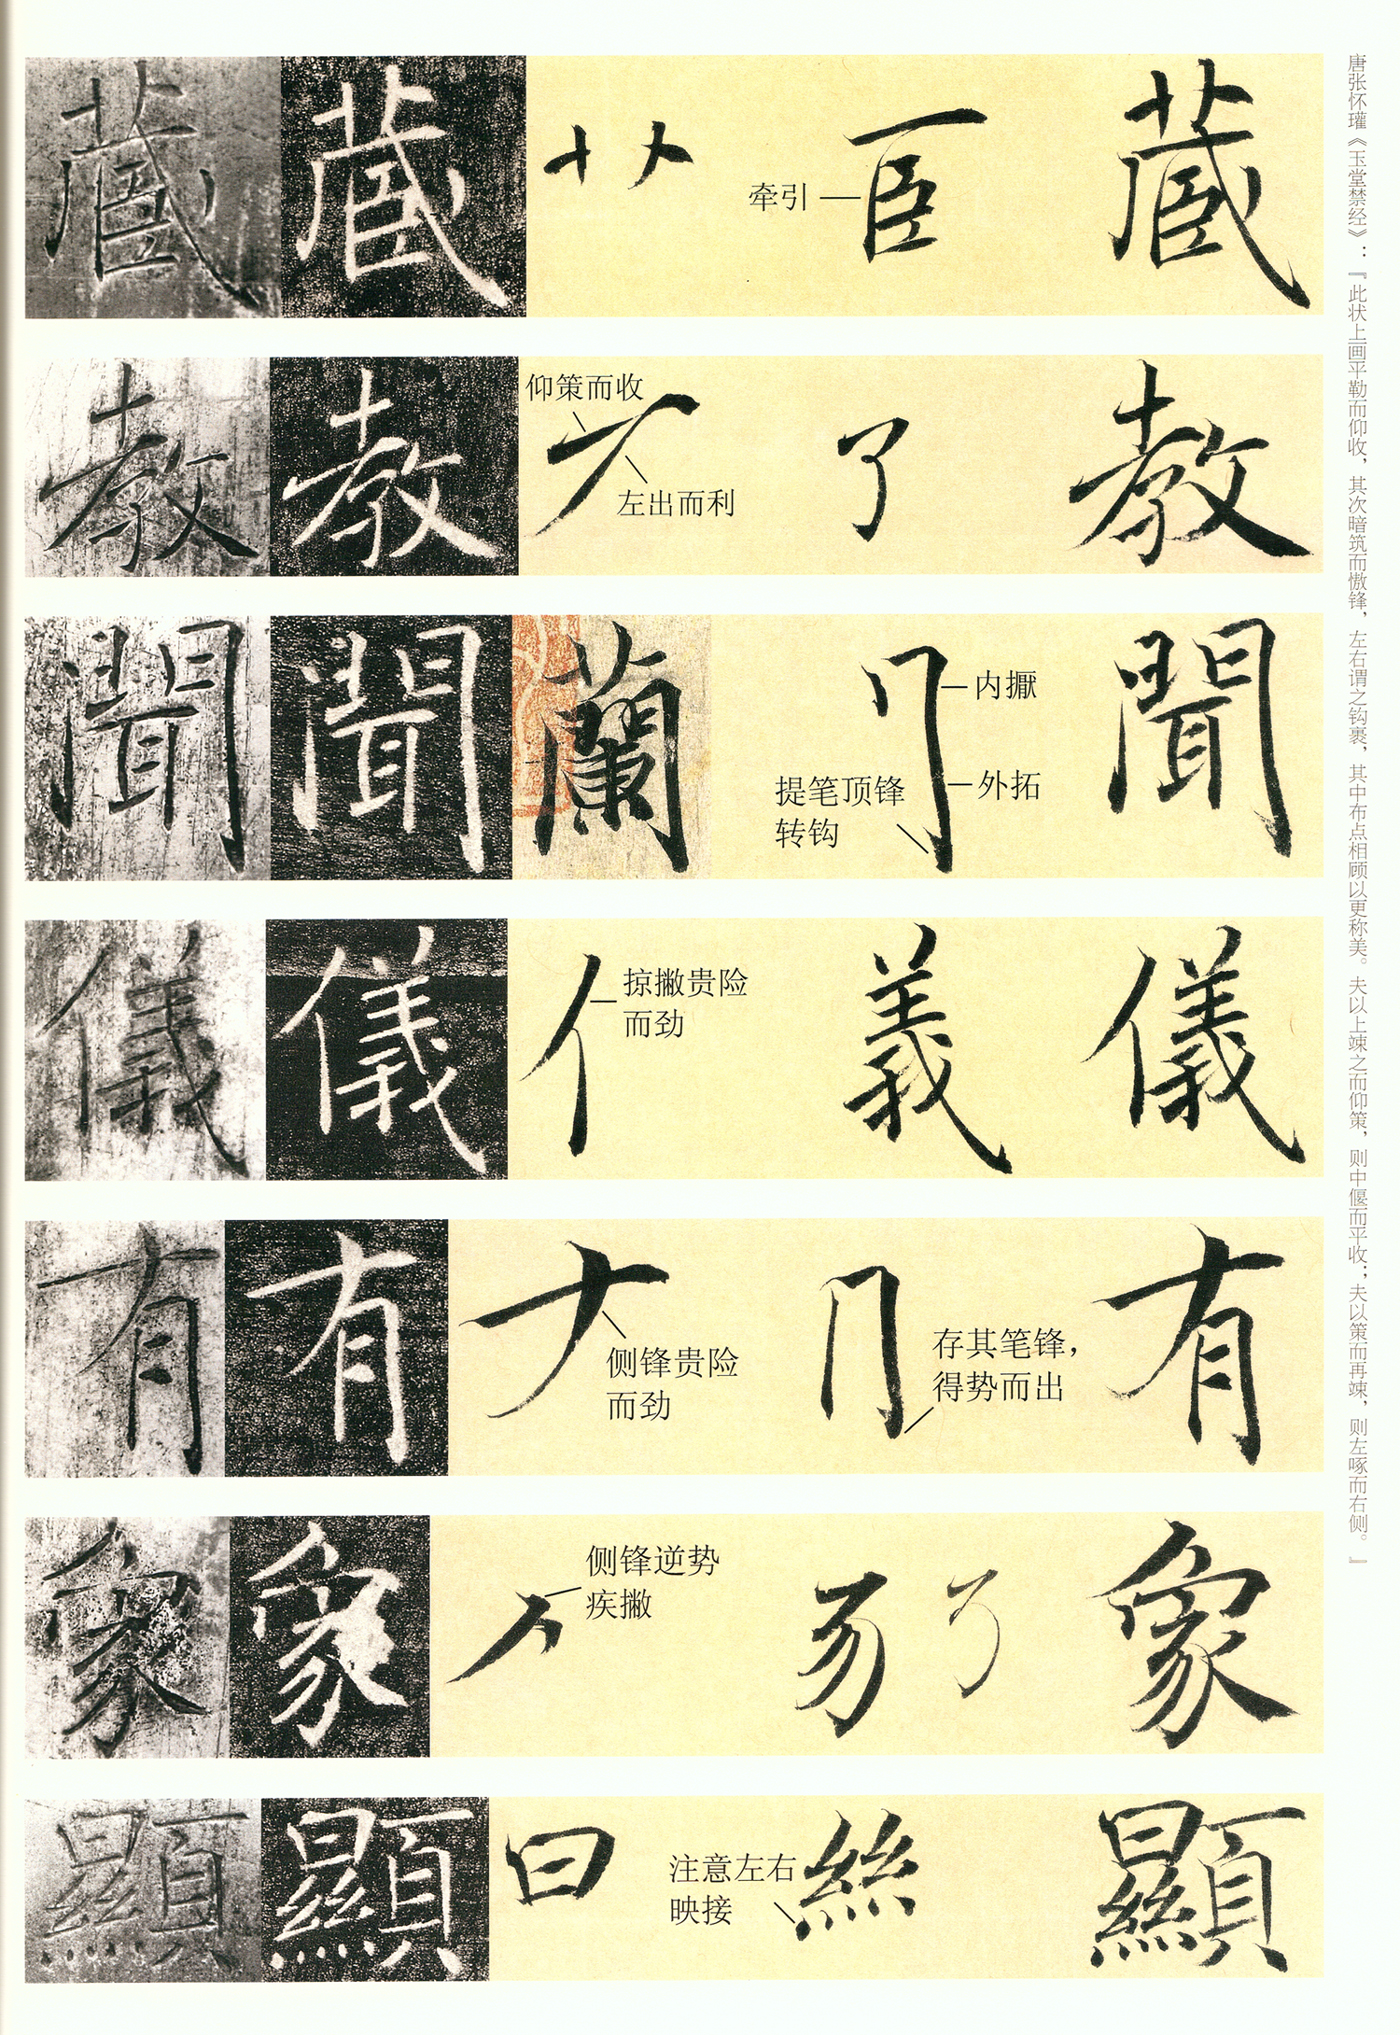 藏 藏 艹 牵引 藏
教 教 仰策而收 左出而利 了 教
聞 聞 蘭 内擫 外拓 提笔顶锋 转钩 聞
儀 儀 亻 掠撇贵险 而劲 義 儀
有 有 侧锋贵险 而劲 存其笔锋， 得势而出 有
象 象 侧锋逆势 疾撇 象
顯 顯 曰 注意左右 映接 絲 顯
唐张怀瓘《玉堂禁经》：『此状上画平勒而仰收，其次暗筑而慠锋，左右谓之钩裹，其中布点相顾以更称美。夫以上竦之而仰策，则中偃而平收；夫以策而再竦，则左啄而右侧。』